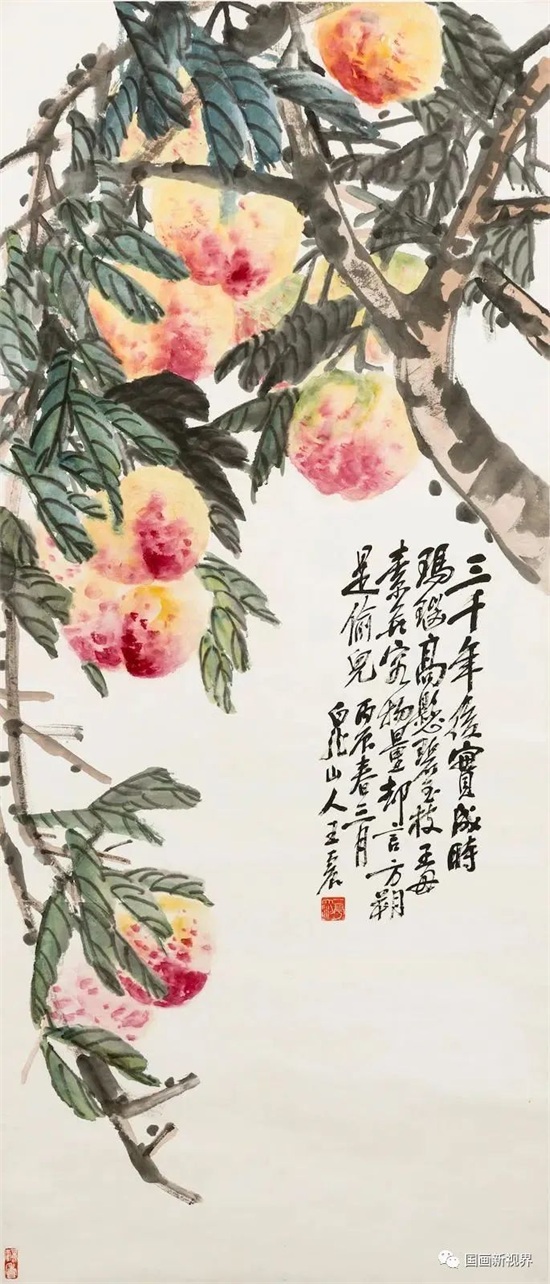 三千年後實成時
瑪瑙高懸碧玉枝王母
素無容物量却言方朔
是偷兒 丙辰春三月
白龍山人王震
国画新视界